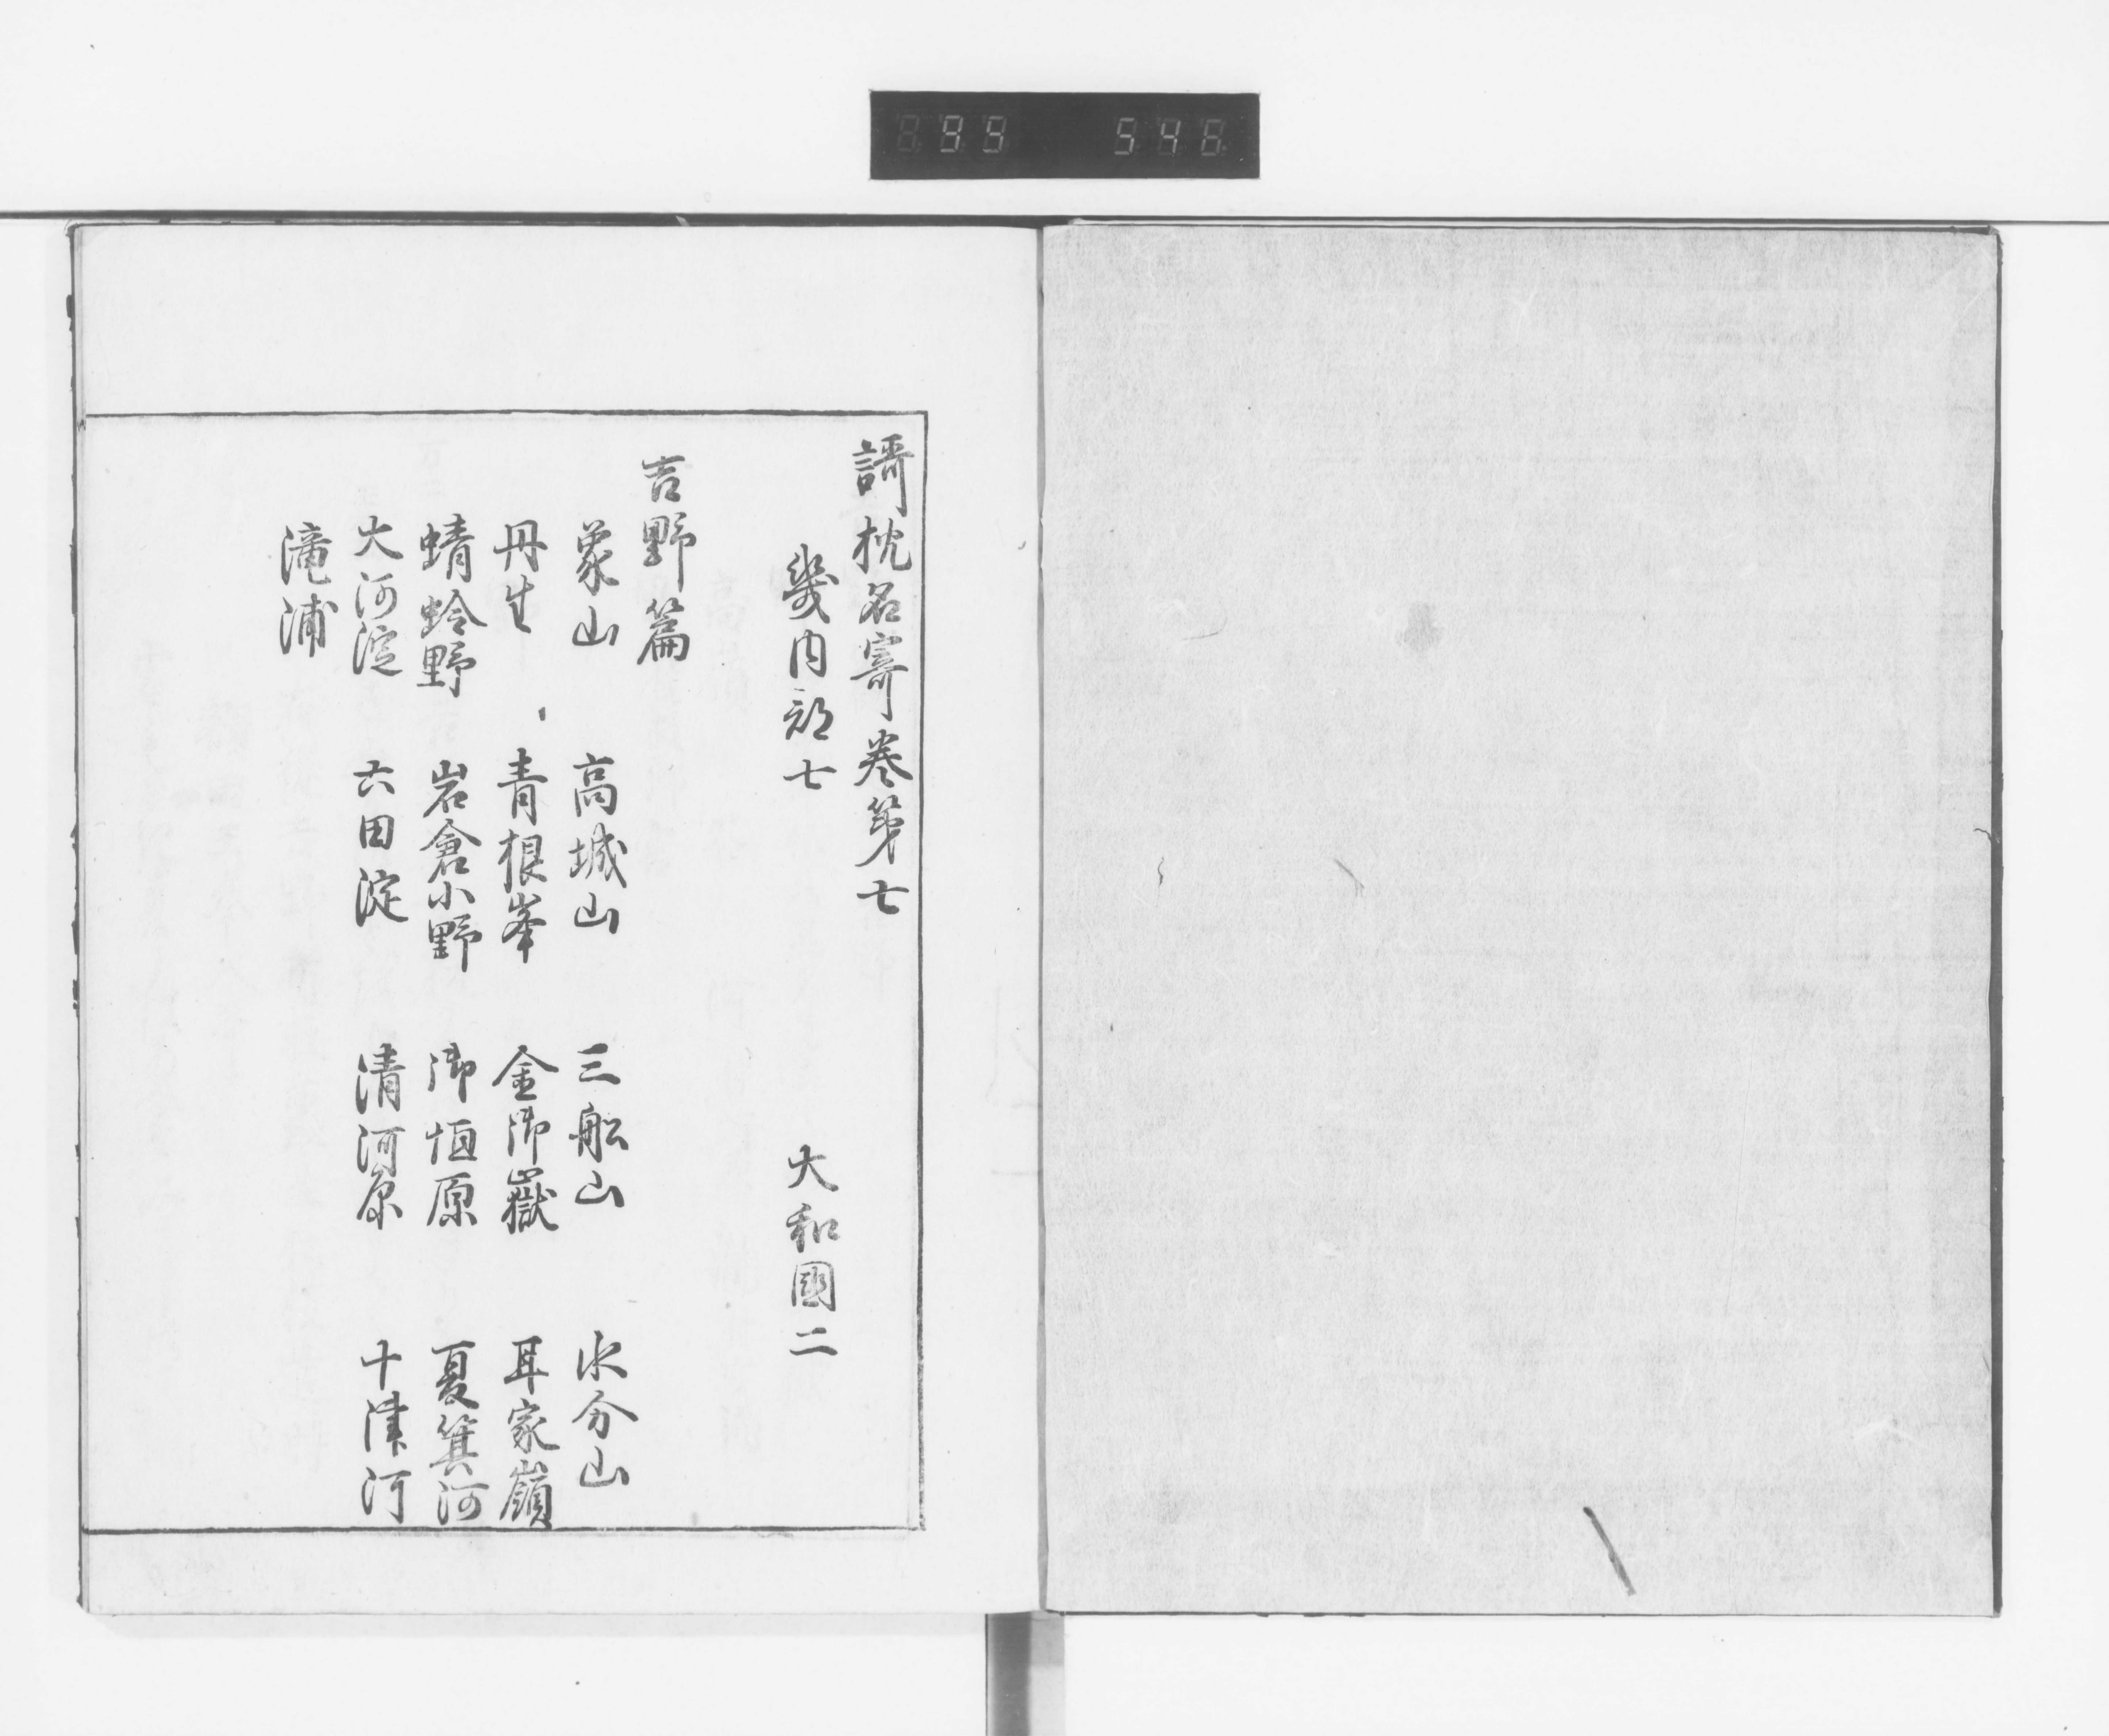 謌枕名寄巻第七
幾内部七　大和國二
吉野篇
象山　高城山　三舩山　水分山
丹生　青根峯　金御嶽　耳家嶺
蜻蛉野　岩倉小野　御垣原　夏箕河
大河淀　六田淀　清河原　十津河
滝浦
99 548